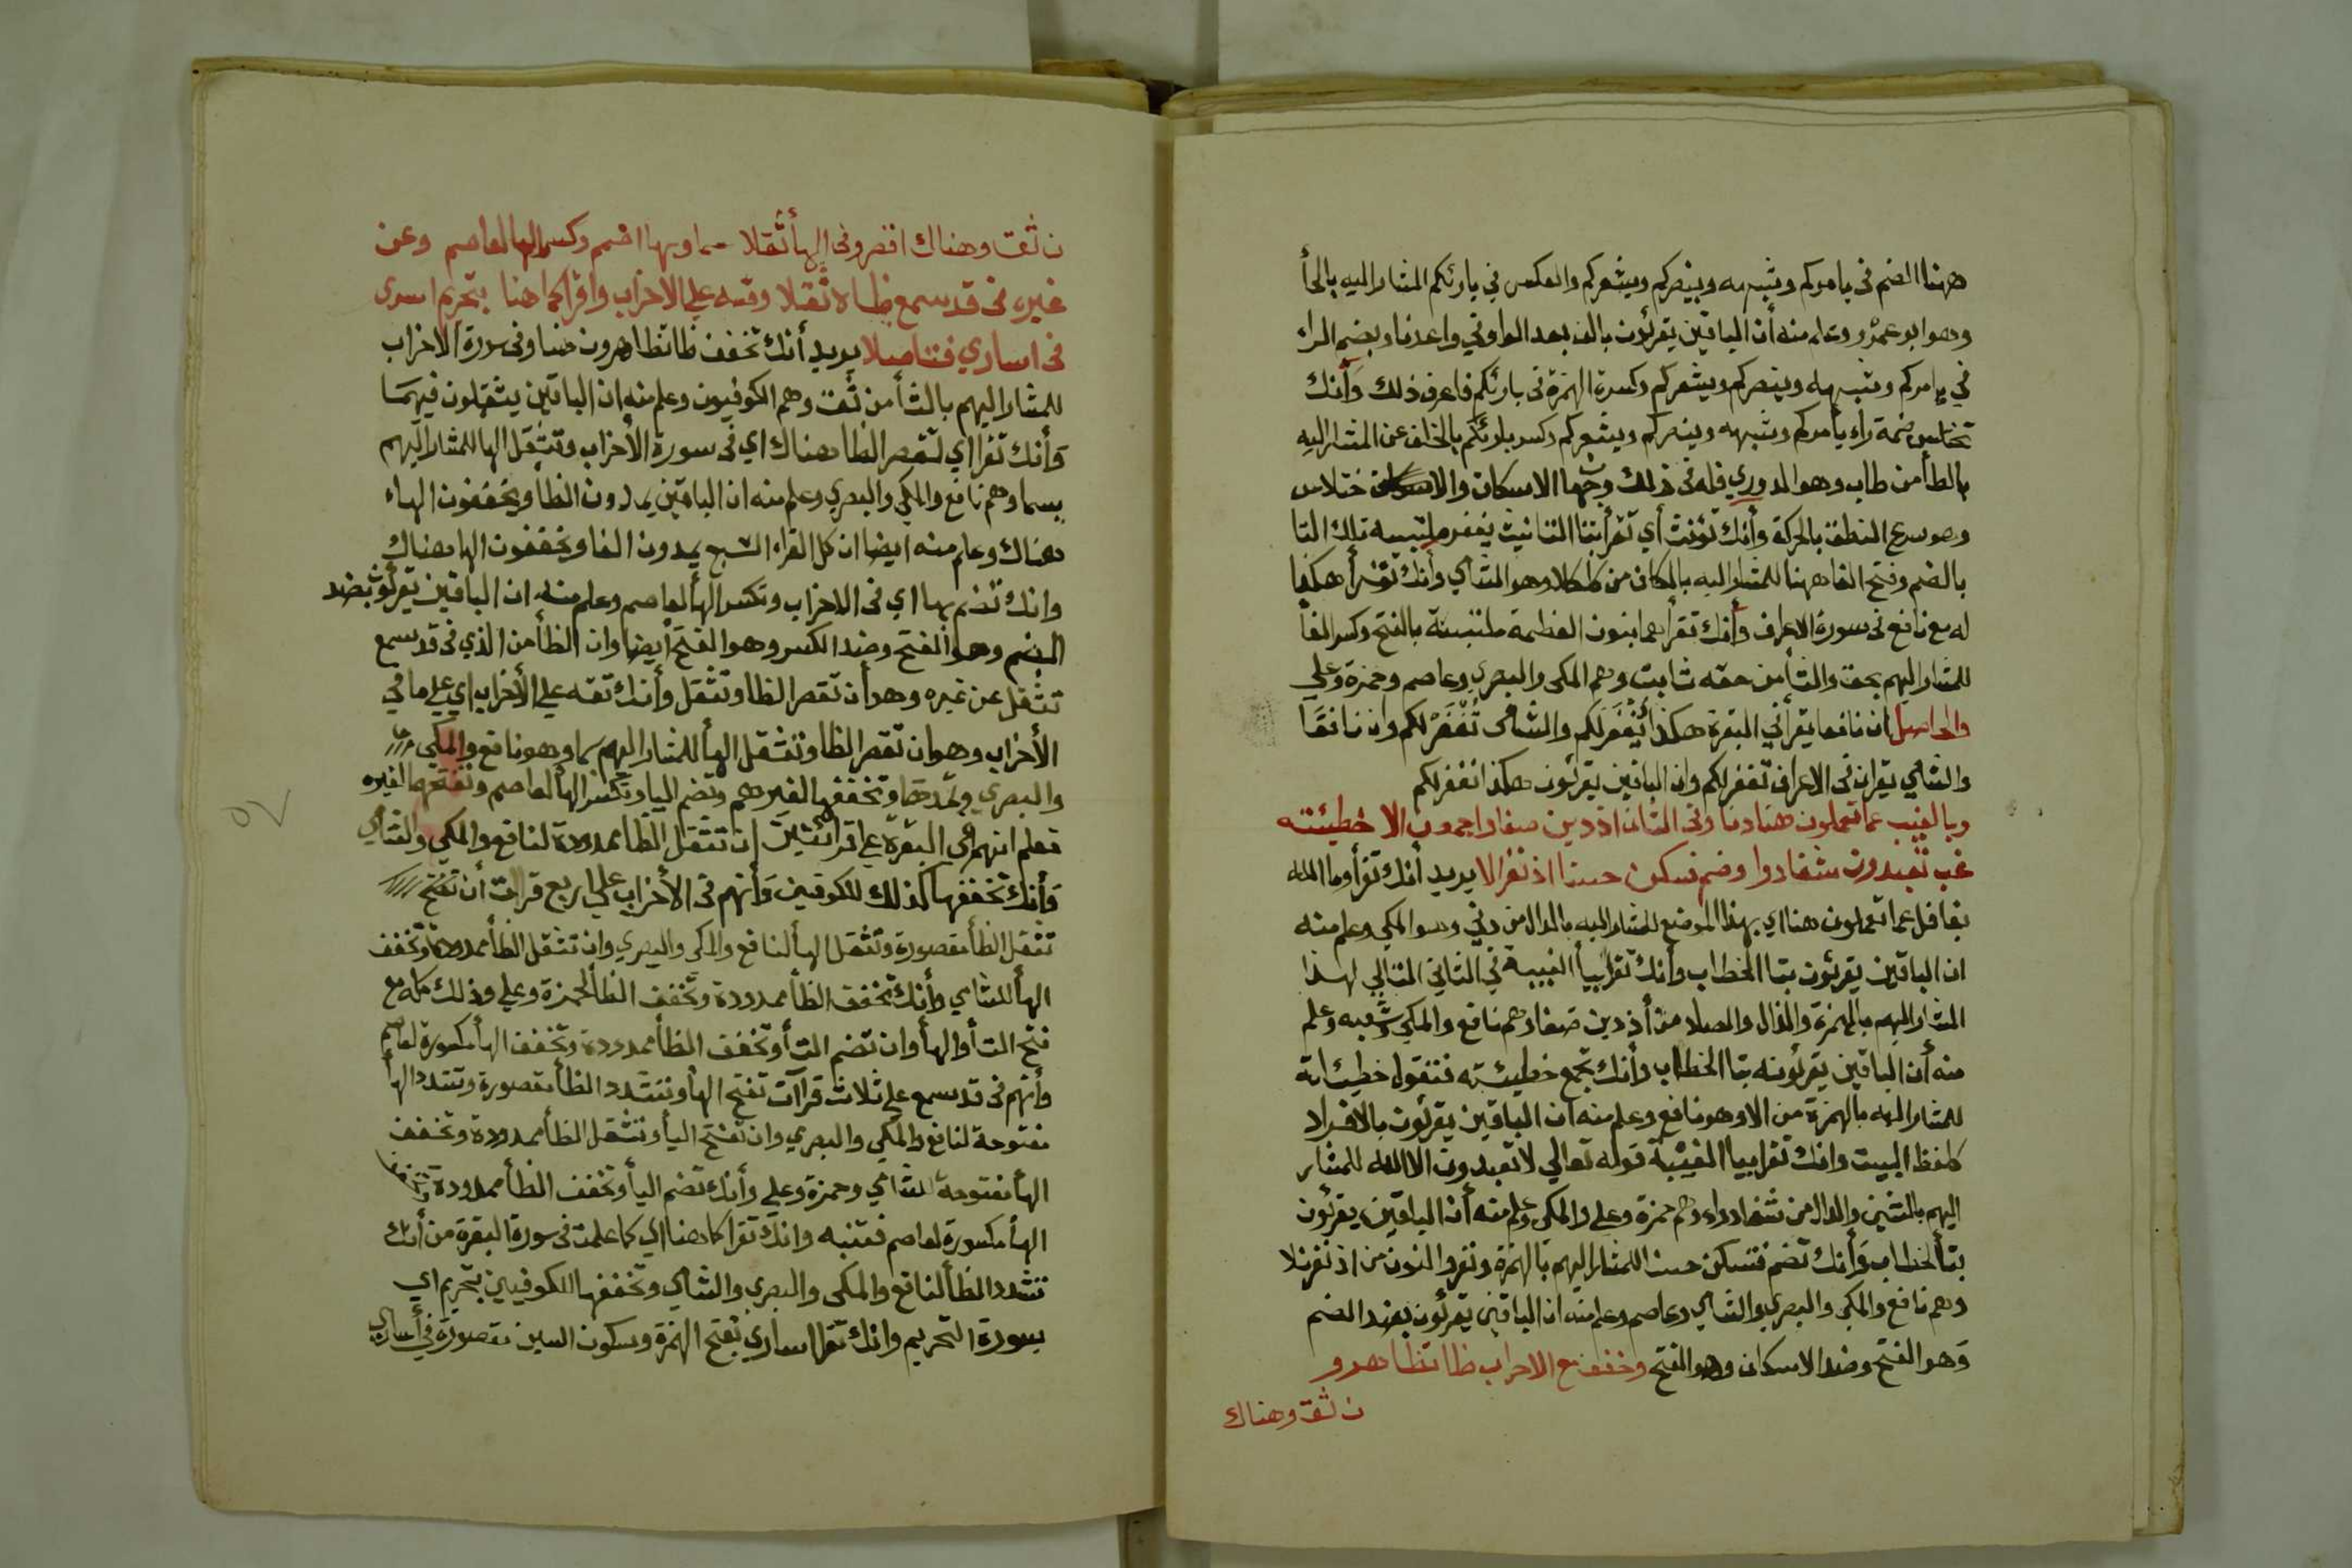 ههنا الضم في يامركم وشبهه وينصركم ويشعركم والعكس في بارئكم المشار اليه بالحأ
وهو ابو عمرو وعلم منه أن الباقين يقرئون بالف بعد الواو في واعدنا وبضم الراء
في يامركم وشبهه وينصركم ويشعركم وكسرة الهمزة في بارئكم فاعرف ذلك وأنك
تختلس ضمة راء يأمركم وشبهه وينصركم ويشعركم وكسر بارئكم بالخلف عن المشار اليه
بالطأ من طاب وهو الدوري فله في ذلك وجها الاسكان والاختلاس
وهو سرع النطق بالحركة وأنك تؤنث أي تقرأ بتا التانيث يغفر ملتبسه تلك التا
بالضم وفتح الفا ههنا للمشار اليه بالكاف من كلا وهو الشاي وأنك تقرأ هكذا
له مع نافع في سورة الاعراف وأنك تقرأهما بنون العظمة ملتبسة بالفتح وكسر الفأ
للمشار اليهم بحق والثأ من حقه ثابت وهم المكي والبصري وعاصم وحمزة وعلي
والحاصل ان نافعا يقرأ في البقرة هكذا يُغْفَرلكم والشامى تُغْفَرْ لكم وان نافعًا
والشاي يقران في الاعراف تغفر لكم وان الباقين يقرئون هكذا نغفر لكم
وبالغيب عما تعملون هنا دنا وفي الثان اذ دين صفا واجمعون الا خطيئته
غب تعبدون شفا دوا وضم فسكن حسنا اذ نفر الا يريد أنك تقرأ وما الله
بغافل عما تعملون هنا اي بهذا الموضع للمشار اليه بالدال من دني وهو المكي وعلم منه
ان الباقين يقرئون بتا الخطاب وأنك تقرأ بيأ الغيبة في الثاني التالي لهذا
المشار اليهم بالهمزة والدال والصاد من أذ دين صفا وهم نافع والمكي وشعبه وعلم
منه أن الباقين يقرئونه بتا الخطاب وأنك تجمع خطيئته فتقول خطيئاته
للمشار اليه بالهمزة من الا وهو نافع وعلم منه ان الباقين يقرئون بالافراد
كلفظ البيت وانك تقرا بيا الغيبة قوله تعالي لا تعبدون الا الله للمشار
اليهم بالشين والدال من شفا دواء وهم حمزة وعلي والمكي وعلم منه أن الباقين يقرئون
بتأ الخطاب وأنك تضم فتسكن حسنا للمشار اليهم بالهمزة ونفر والنون من اذ نفر نلا
وهم نافع والمكي والبصري والشاي وعاصم وعلم منه ان الباقين يقرئون بضد الضم
وهو الفتح وضد الاسكان وهو الفتح وخفف مع الاحزاب ظا تظاهرو
ن ثق وهناك
ن ثق وهناك اقصر وفي الها أثقلا سما وبها اضم وكسر الها لعاصم وعن
غيره في قد سمع ظاه ثقلا وقسه علي الاخزاب واقرا كما هنا بتحريم اسرى
في اساري فتاصلا يريد أنك تخفف ظا تظاهرون هنا وفي سورة الاحزاب
للمشار اليهم بالثأ من ثق وهم الكوفيون وعلم منه ان الباقين يثقلون فيهما
وأنك تقرا اي تقصر الظا هناك اي في سورة الأحزاب وتثقل الها للمشار اليهم
بسما وهم نافع والمكي والبصري وعلم منه ان الباقين يمدون الظأ ويخففون الهاء
هناك وعلم منه ايضا ان كل القراء السبع يمدون الفا ويخففون الها هناك
وانك تضم بها اي في الاخزاب وتكسر الهأ لعاصم وعلم منه ان الباقين يقرئون بضد
الضم وهو الفتح وضد الكسر وهو الفتح أيضا وان الظأ من الذي في قد سمع
تثقل عن غيره وهو أن تقصر الظا وتثقل وأنك تقه علي الأخزاب اي علي ما في
الأخزاب وهو ان تقصر الظا وتثقل الهأ للمشار اليهم بسما وهو نافع والمكي
والبصري وتمدها وتخففها لغيرهم وتضم اليا وتكسر الهأ لعاصم وتفتحهما لغيره
فعلم انهم في البقرة علي قرائتين ان تثقل الظا ممدودة لنافع والمكي والشاي
وأنك تخففها كذلك للكوفين وأنهم في الأخزاب علي اربع قرات أن تفتح
تثقل الظأ مقصورة وتثقل الهأ لنافع والمكي والبصري وان تثقل الظأ ممدودة وتخفف
الهأ للشامي وأنك تخفف الظأ ممدودة وتخفف الظأ لحمزة وعلي وذلك كله مع
فتح التأ والهأ وان تضم التأ وتخفف الظأ ممدودة وتخفف الهأ مكسورة لعاصم
وأنهم في قد سمع علي ثلاث قراآت تفتح الهأ وتشدد الظأ مقصورة وتشدد الهأ
مفتوحة لنافع والمكي والبصري وان تفتح اليأ وتثقل الظأ ممدودة وتخفف
الهأ مفتوحة للشامي وحمزة وعلي وأنك تضم اليأ وتخفف الظأ ممدودة وتخفف
الهأ مكسورة لعاصم فتنبه وانك تقرا كما هنا اي كما علمت في سورة البقرة من أنك
تشدد الظأ لنافع والمكي والبصري والشاي وتخففها للكوفيين بتحريم اي
بسورة التحريم وانك تقرا اساري بفتح الهمزة وسكون السين مقصورة في أساري
٥٧